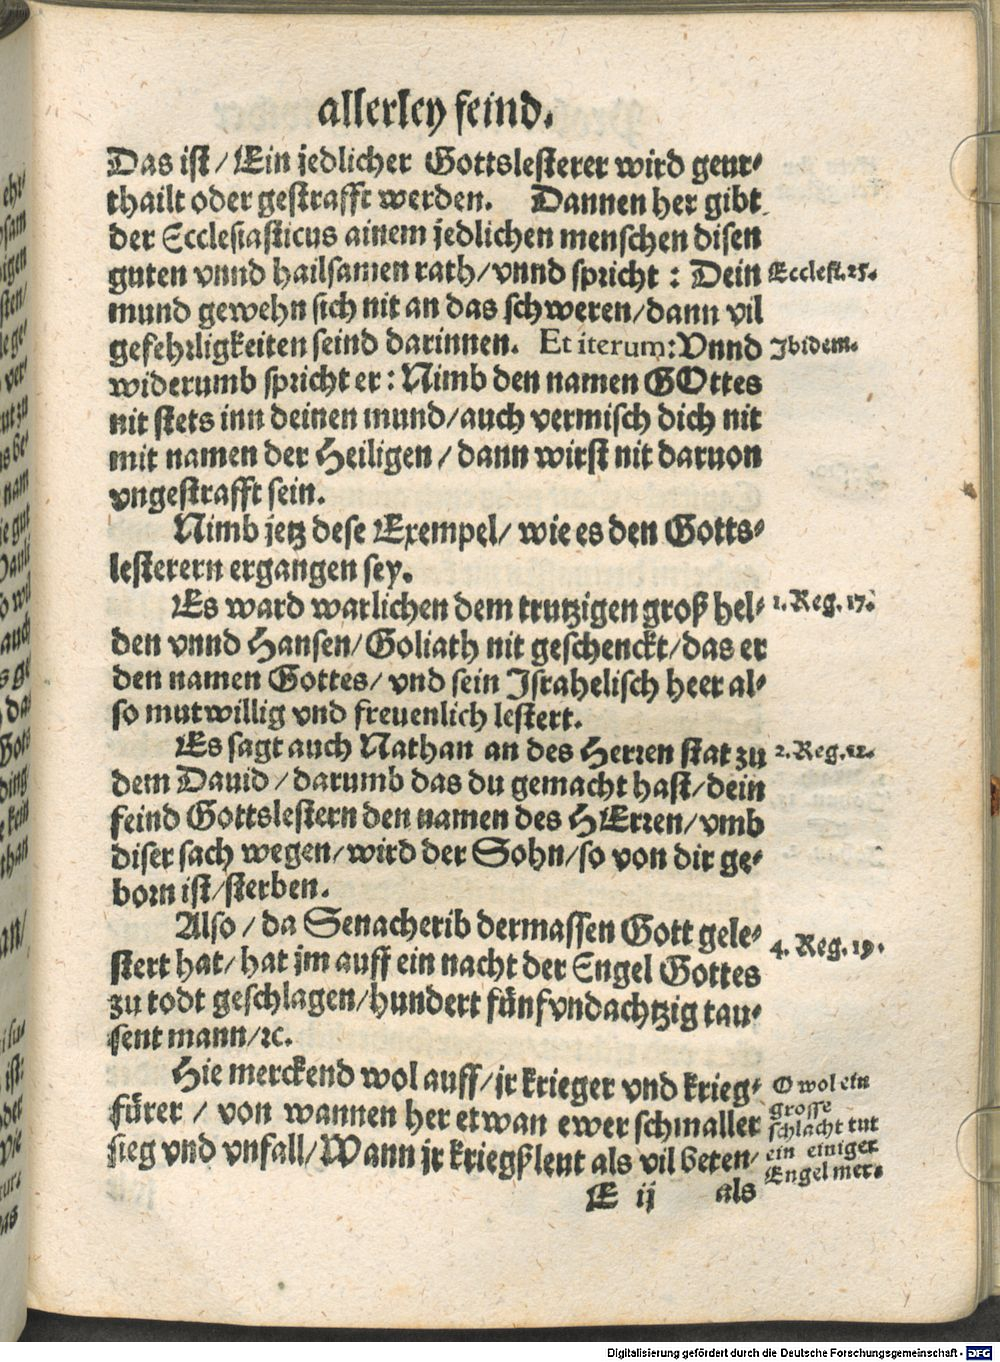 allerley feind.
Das ist / Ein jedlicher Gottslesterer wird geur-
thailt oder gestrafft werden. Dannen her gibt
der Ecclesiasticus ainem jedlichen menschen disen
guten vnnd hailsamen rath / vnnd spricht : Dein
Ecclesi. 25.
mund gewehn sich nit an das schweren / dann vil
gefehrligkeiten seind darinnen. Et iterum: Vnnd
Ibidem.
widerumb spricht er : Nimb den namen GOttes
nit stets inn deinen mund / auch vermisch dich nit
mit namen der Heiligen / dann wirst nit daruon
vngestrafft sein.
Nimb jetz dese Exempel / wie es den Gotts-
lesterern ergangen sey.
Es ward warlichen dem trutzigen groß hel-
1. Reg. 17.
den vnnd Hansen / Goliath nit geschenckt / das er
den namen Gottes / vnd sein Israhelisch heer al-
so mutwillig vnd freuenlich lestert.
Es sagt auch Nathan an des Herren stat zu
2. Reg. 12.
dem Dauid / darumb das du gemacht hast / dein
feind Gottslestern den namen des HErren / vmb
diser sach wegen / wird der Sohn / so von dir ge-
born ist / sterben.
Also / da Senacherib dermassen Gott gele-
4. Reg. 19.
stert hat / hat jm auff ein nacht der Engel Gottes
zu todt geschlagen / hundert fünfvndachtzig tau-
sent mann / ꝛc.
Hie merckend wol auff / jr krieger vnd krieg-
O wol ein
fürer / von wannen her etwan ewer schmaller
grosse
schlacht tut
sieg vnd vnfall / Wann jr kriegßleut als vil beten /
ein einiger
Engel mer.
E ij
als
Digitalisierung gefördert durch die Deutsche Forschungsgemeinschaft - DFG